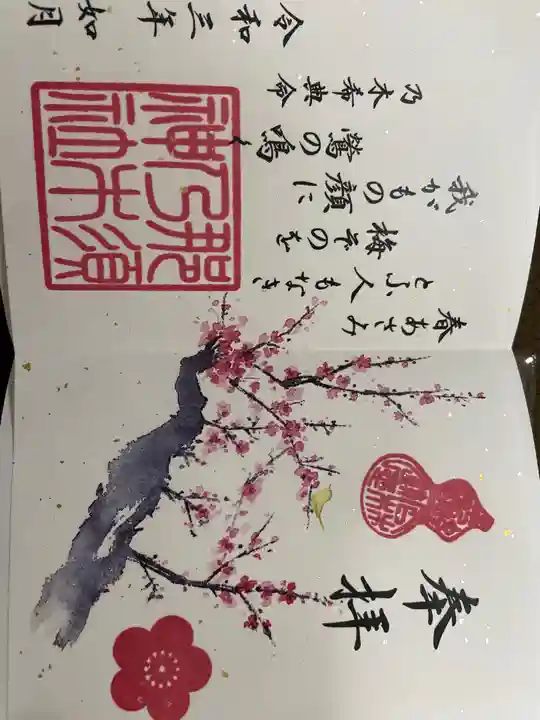 奉拝
春あさみ
とふ人もなき
梅そのを
我がもの顔に
鶯の鳴く
乃木希典命
令和三年
如月
那須
乃木
神社